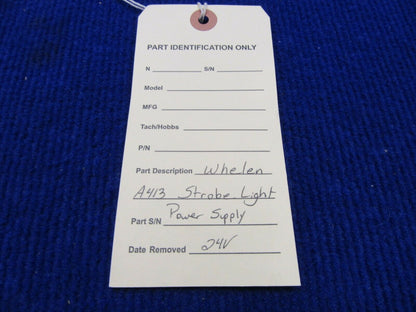 PART IDENTIFICATION ONLY
N S/N
Model
MFG
Tach/Hobbs
P/N
Part Description Whelen
A413 Strobe Light
Part S/N Power Supply
Date Removed 24V